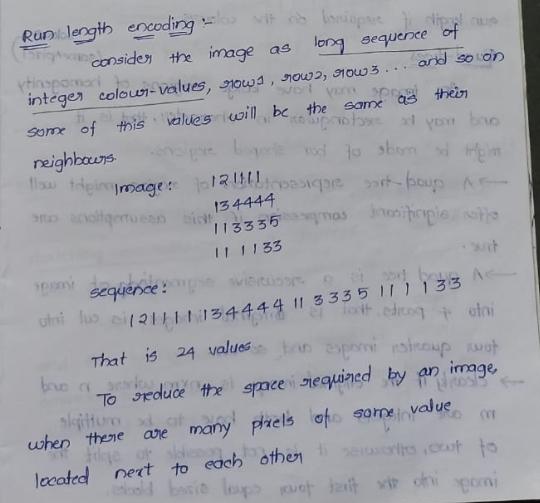 Run length encoding :-
consider the image as long sequence of
integer colour-values, row1, row2, row3 ... and so on
some of this values will be the same as their
neighbours.
Image: 121111
134444
113335
111133
sequence:
1 2 1 1 1 1 1 3 4 4 4 4 1 1 3 3 3 5 1 1 1 1 3 3
That is 24 values
To reduce the space required by an image,
when there are many pixels of same value
located next to each other